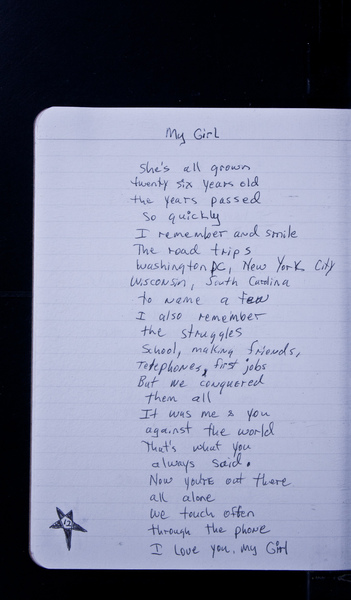 My Girl
She's all grown
twenty six years old
the years passed
So quickly
I remember and smile
The road trips
Washington DC, New York City
Wisconsin, South Carolina
to name a few
I also remember
the struggles
School, making friends,
Telephones, first jobs
But we conquered
them all
It was me & you
against the world
That's what you
always said.
Now you're out there
all alone
We touch often
through the phone
I love you. My Girl